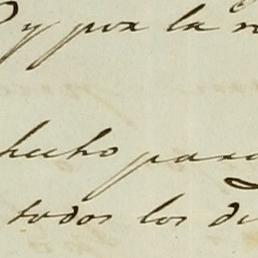 y por la
hecho para
todos los